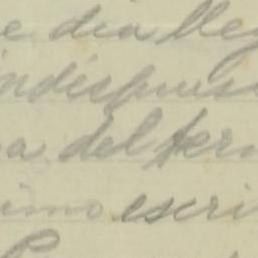 e dia lleg
indispues
a del ter
imo escri